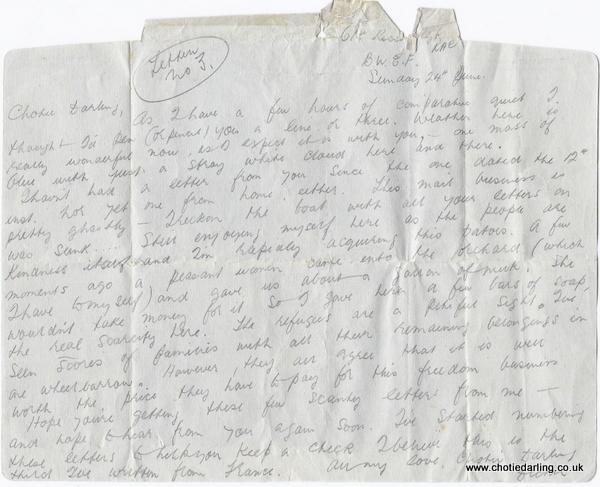 Letter
No 3.
RAC
B.W.E.F.
Sunday 24th June.
Chotie Darling,
As I have a few hours of comparative quiet I
thought I'd pen (or pencil) you a line or three. Weather here is
really wonderful now, as I expect it is with you, – one mass of
blue with just a stray white cloud here and there.
I haven't had a letter from you since the one dated the 12th
inst. nor yet one from home either. This mail business is
pretty ghastly – I reckon the boat with all your letters on
was sunk... Still enjoying myself here as the people are
kindness itself and I'm rapidly acquiring this patois. A few
moments ago a peasant women came into the orchard (which
I have to myself) and gave us about a gallon of milk. She
wouldn't take money for it so I gave her a few bars of soap,
the real scarcity here. The refugees are a pitiful sight. I've
seen scores of families with all their remaining belongings in
are wheelbarrow. However, they all agree that it is well
worth the price they have to pay for this freedom business
Hope you're getting these few scanty letters from me –
and hope to hear from you again soon. I've started numbering
these letters to help you keep a check I believe this is the
third I've written from France. All my love Chotie Darling
www.chotiedarling.co.uk